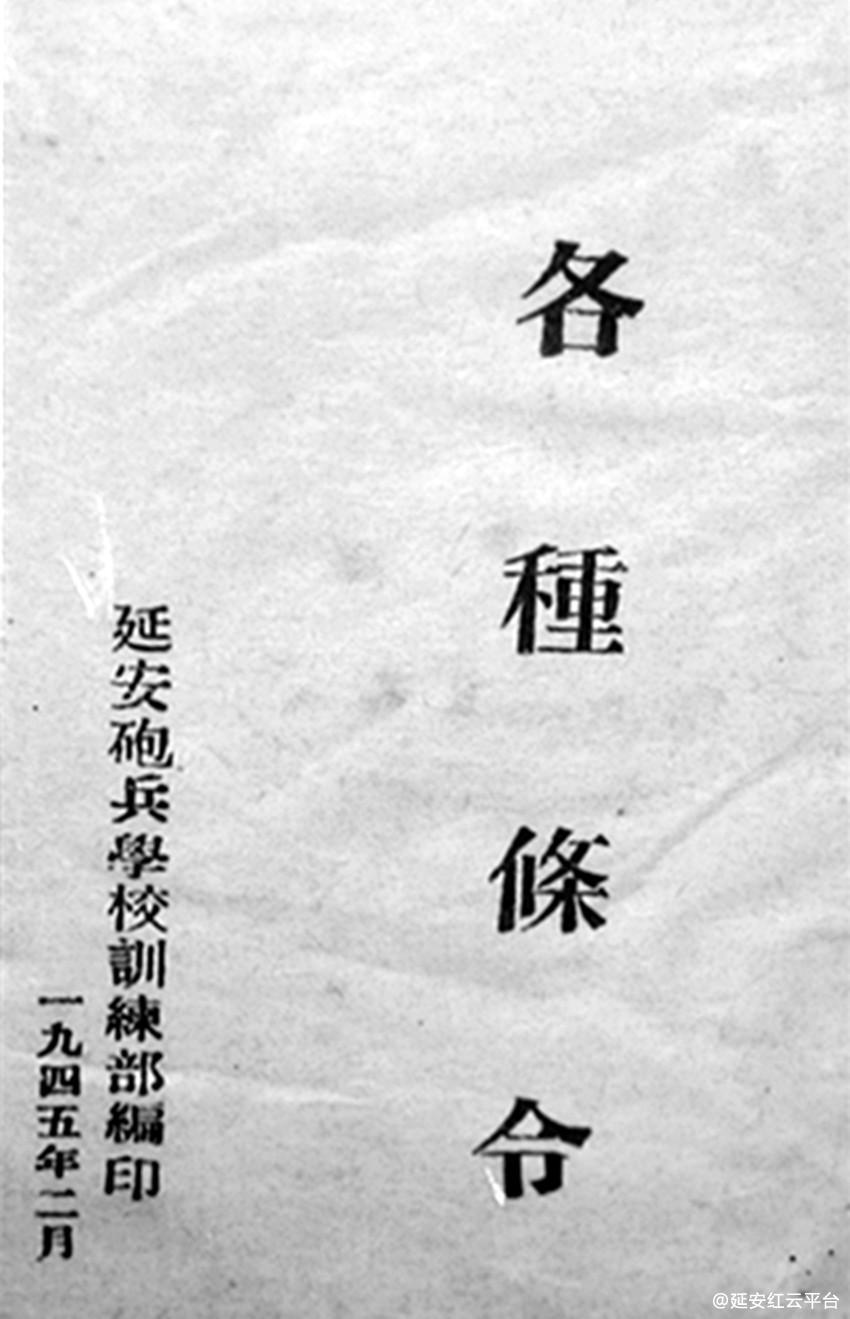 各種條令
延安砲兵學校訓練部編印
一九四五年二月
@延安红云平台